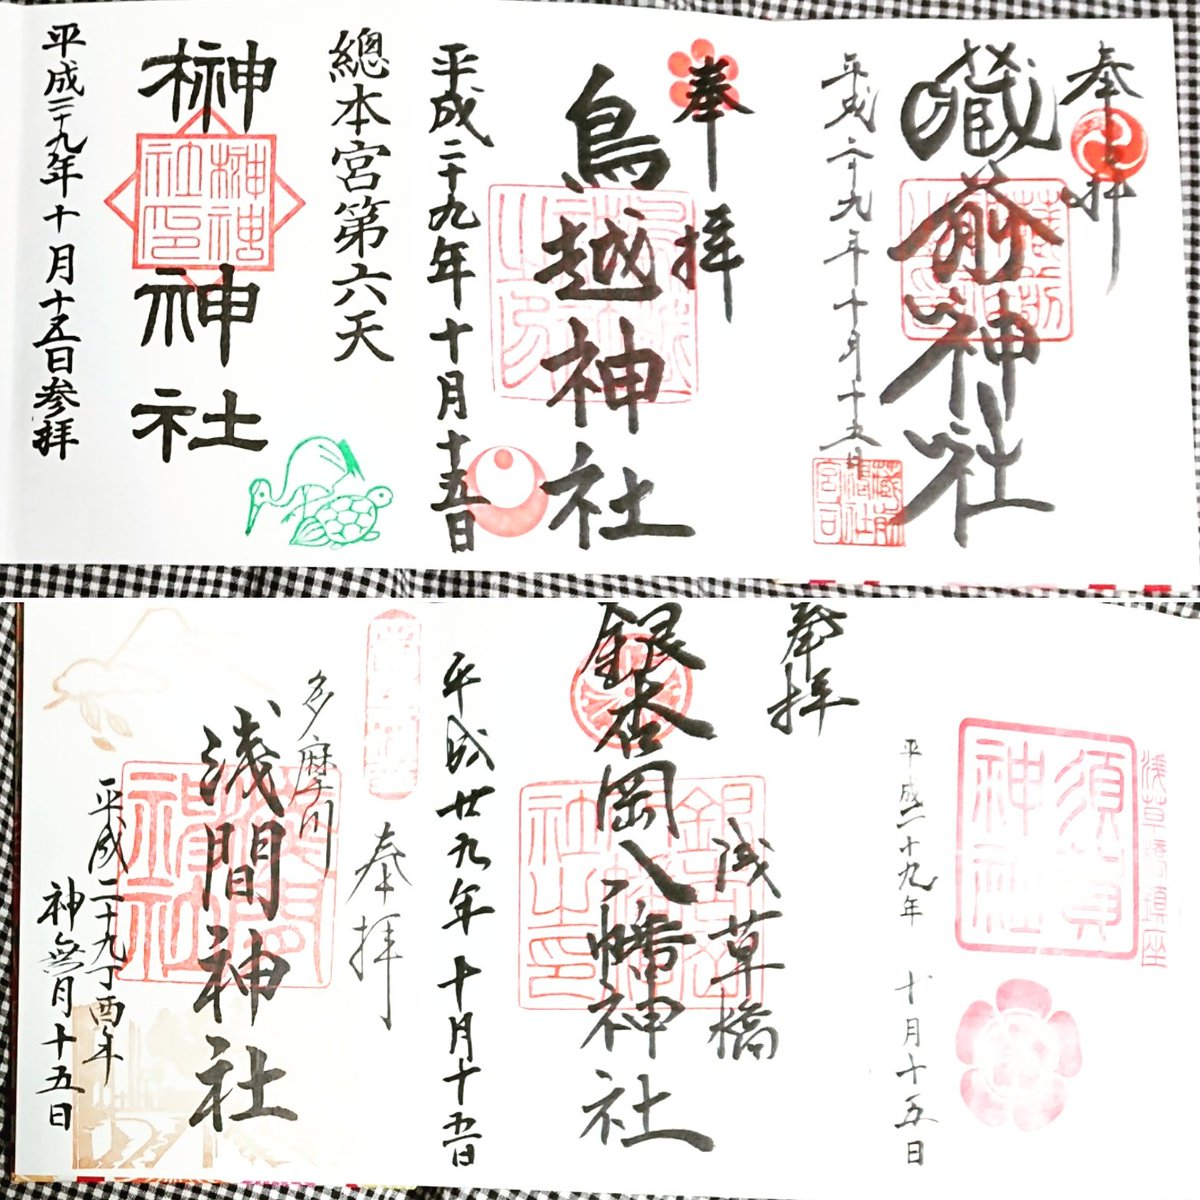 奉拝
蔵前神社
平成二十九年十月十五日
蔵前
神社
宮司
奉拝
鳥越神社
平成二十九年十月十五日
總本宮第六天
榊神社
榊神
社印
平成二十九年十月十五日参拝
浅草橋鎮座
須賀
神社
平成二十九年 十月十五日
奉拝
浅草橋
銀杏岡八幡神社
平成廿九年十月十五日
奉拝
多摩川
浅間神社
平成二十九丁酉年
神無月十五日